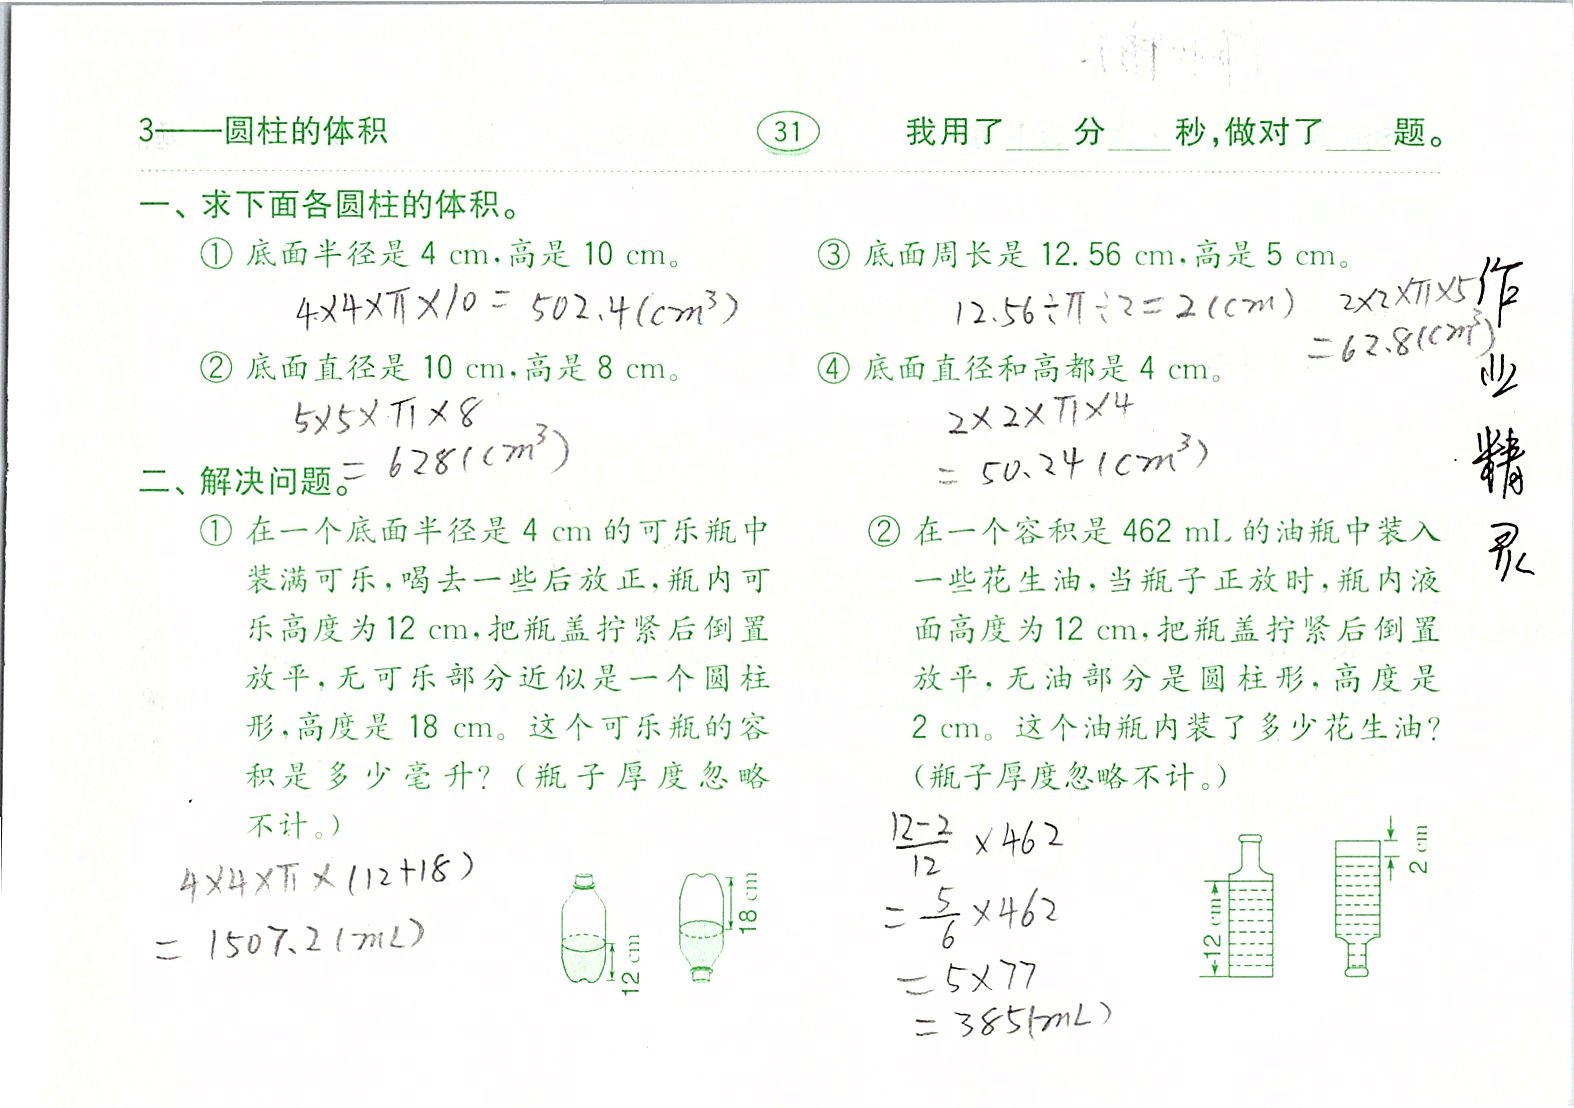 3——圆柱的体积
31
我用了____分____秒,做对了____题。
一、求下面各圆柱的体积。
① 底面半径是 4 cm,高是 10 cm。
4×4×π×10= 502.4(cm³)
② 底面直径是 10 cm,高是 8 cm。
5×5×π×8
= 628(cm³)
③ 底面周长是 12.56 cm,高是 5 cm。
12.56÷π÷2=2(cm) 2×2×π×5
=62.8(cm³)
④ 底面直径和高都是 4 cm。
2×2×π×4
= 50.24(cm³)
作业精灵
二、解决问题。
① 在一个底面半径是 4 cm 的可乐瓶中
装满可乐,喝去一些后放正,瓶内可
乐高度为 12 cm,把瓶盖拧紧后倒置
放平,无可乐部分近似是一个圆柱
形,高度是 18 cm。这个可乐瓶的容
积是多少毫升?(瓶子厚度忽略
不计。)
4×4×π×(12+18)
= 1507.2(mL)
12 cm
18 cm
② 在一个容积是 462 mL 的油瓶中装入
一些花生油,当瓶子正放时,瓶内液
面高度为 12 cm,把瓶盖拧紧后倒置
放平,无油部分是圆柱形,高度是
2 cm。这个油瓶内装了多少花生油?
(瓶子厚度忽略不计。)
12-2/12 ×462
= 5/6 ×462
= 5×77
= 385(mL)
12 cm
2 cm